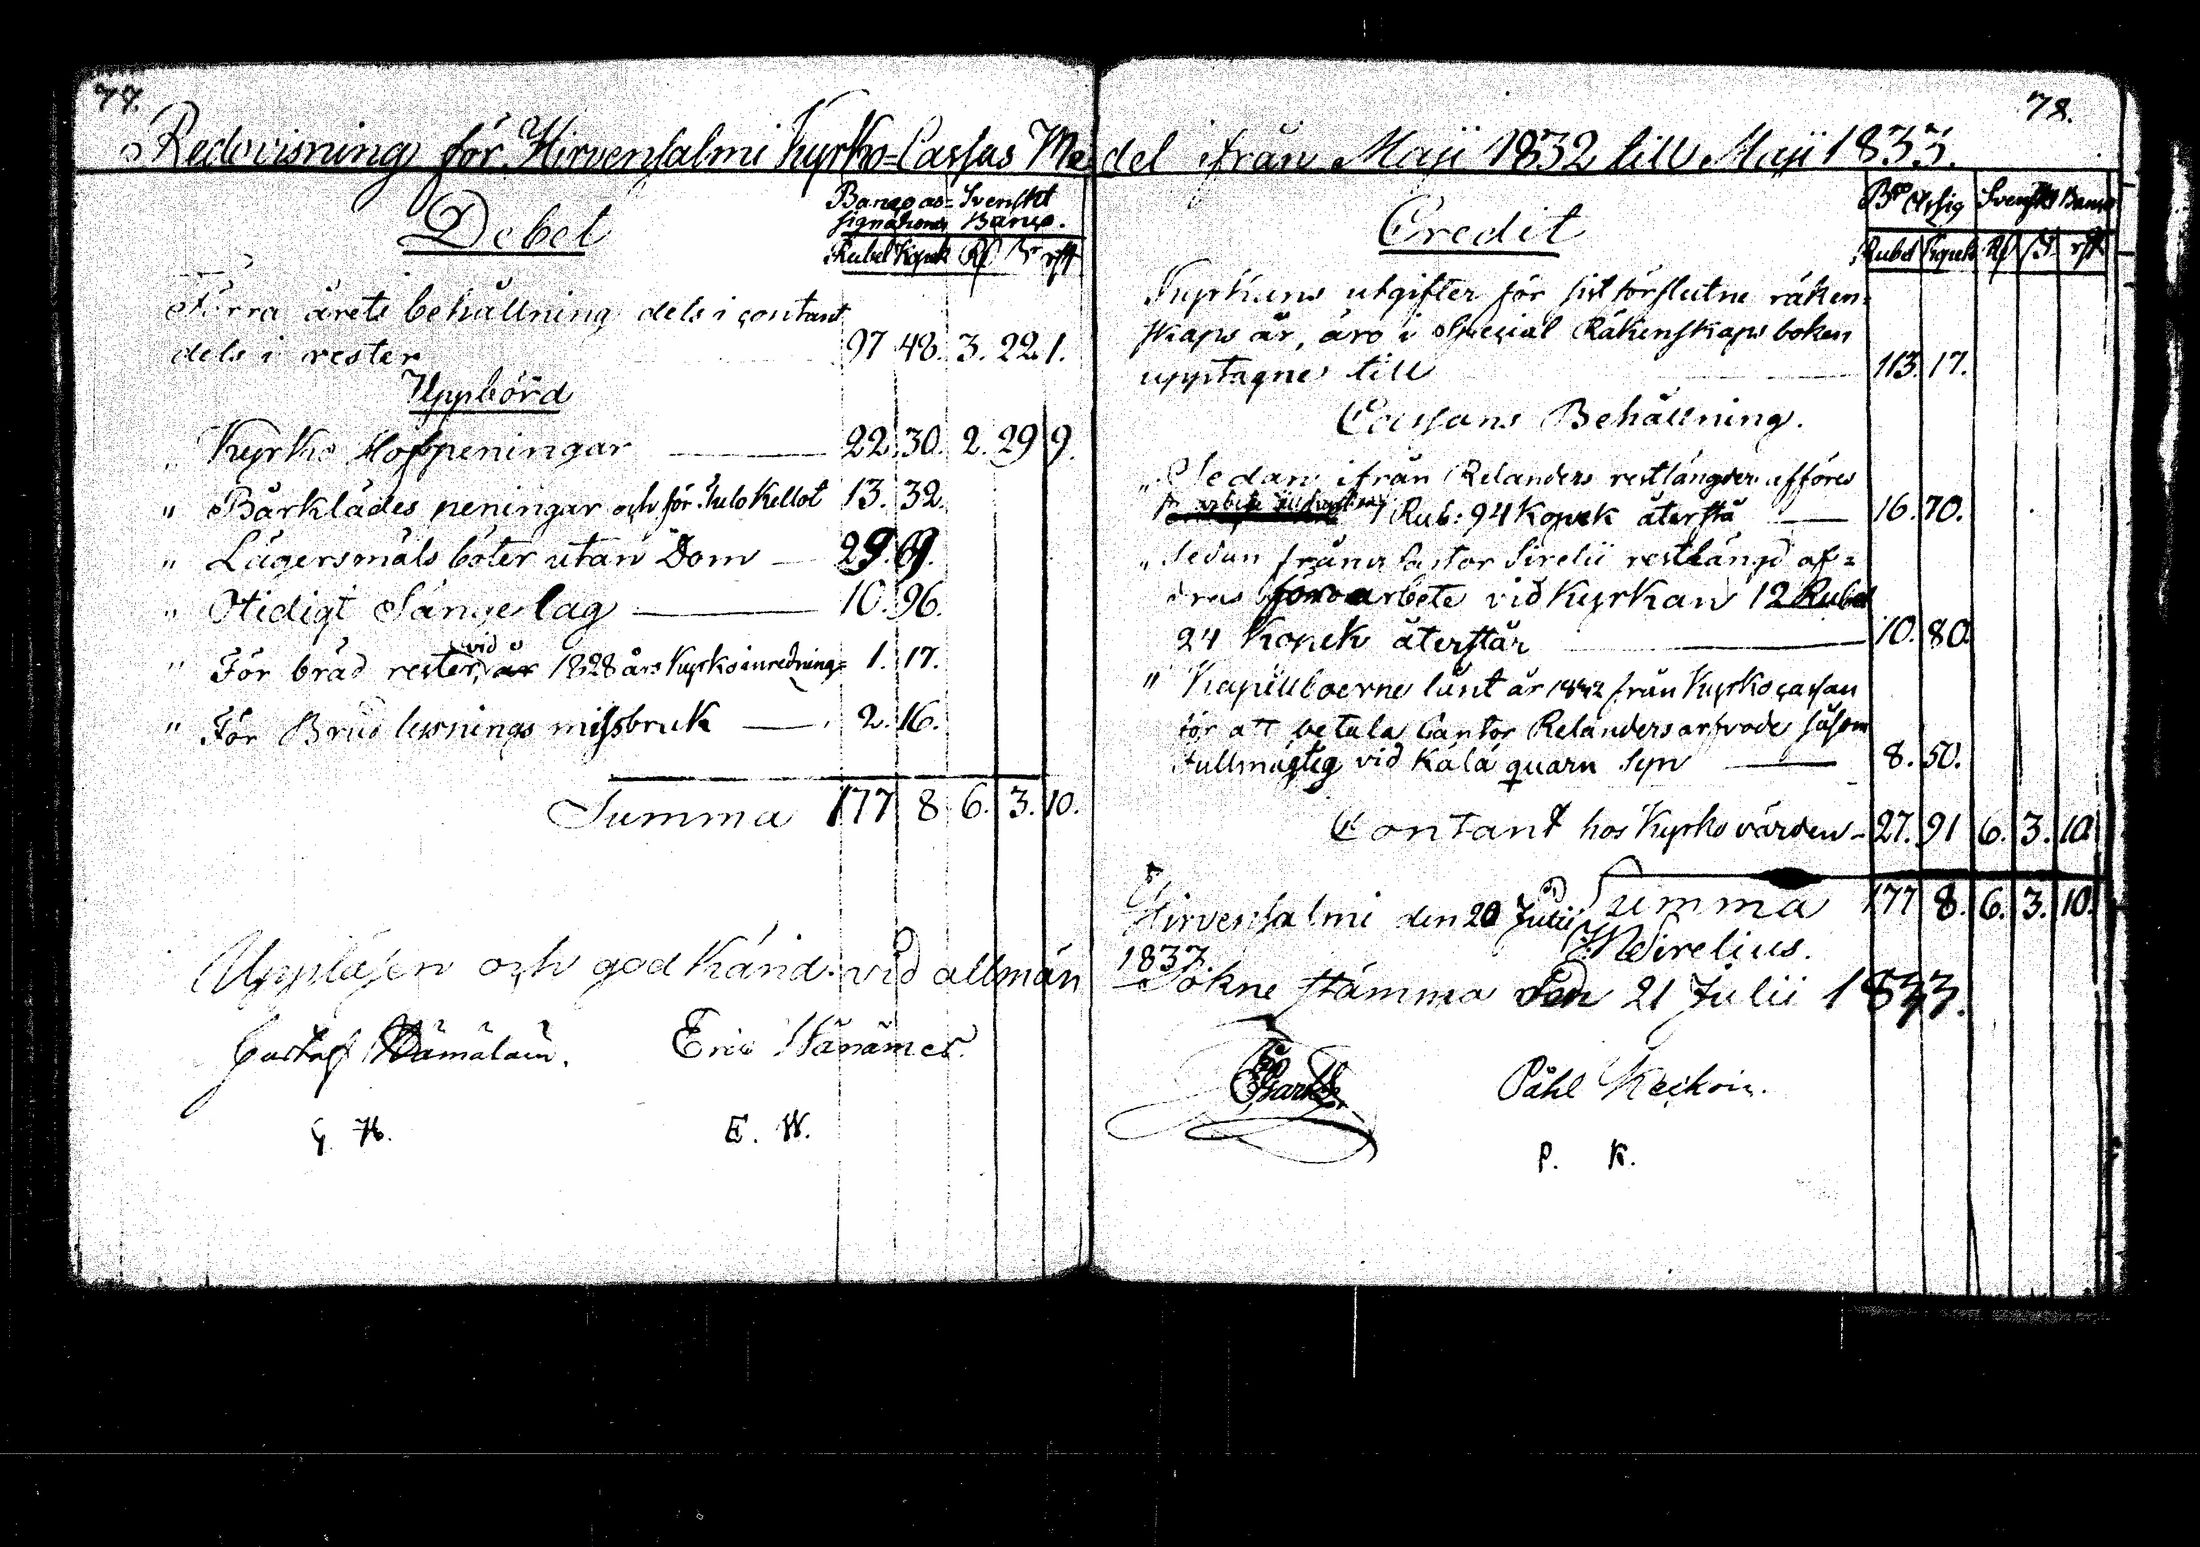 77.
Redovisning för Hirvensalmi Kyrko-Cassas Me
Debet
Banco as= Svenskt
signationer Banco.
Rubel Kopek Rd
Förra årets behållning dels i contant
dels i rester 97 48. 3. 22. 1.
Uppbörd
" Kyrko Hofpeningar 22. 30. 2. 29 9.
" Bårklädes peningar och för Kellot 13. 32.
" Lägersmåls böter utan Dom 29. 69.
" Otidigt Sängelag 10. 96.
vid
" För bräd rester, år 1828 års Kyrko inredning= 1. 17.
" För Brud lysnings missbruk 2. 16.
Summa 177 8 6. 3. 10.
Uppläsen och godkänd vid allmän
Gustaf Hämäläin. Eric Wänänen.
G. H. E. W.
78.
del ifrån Maji 1832 till Maji 1833.
Credit
Bco Assig Svenskt Banco
Rubel Kopek Rd
Kyrkans utgifter för sist förflutne räken=
skaps år, äro i Special Räkenskaps boken
upptagne till 113. 17.
Cassans Behållning.
" Sedan ifrån Relanders restlängder afföres
1 Rub: 94 Kopek återstå 16. 70.
" Sedan från Pastor Sirelii restlängd af=
dras för arbete vid Kyrkan 12 Rubel
24 Kopek återstår 10. 80.
" Kapellboerne lånt år från Kyrko cassan
för att betala Cantor Relanders arfvode såsom
Fullmägtig vid Kälä quarn syn 8. 50.
Contant hos Kyrko värden 27. 91 6. 3. 10.
Summa 177 8. 6. 3. 10.
Hirvensalmi den 20 Julii
1833. Sirelius.
Sokne stämma den 21 Julii 1833.
Påhl Keckoin.
P. K.